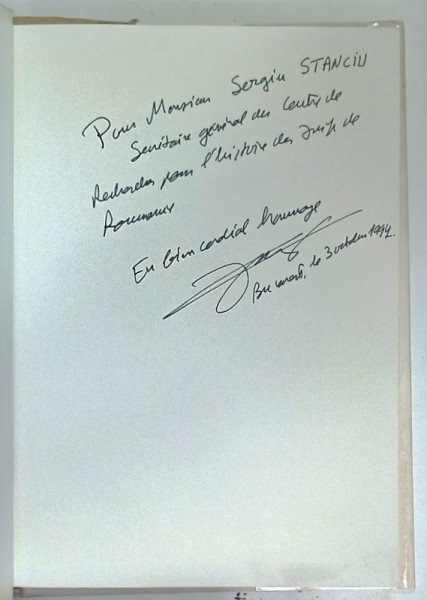 Pour Monsieur Sergiu STANCIU
Secrétaire général du Centre de
Recherches pour l'histoire des Juifs de
Roumanie
En bien cordial hommage
Bucarest, le 3 octobre 1994.